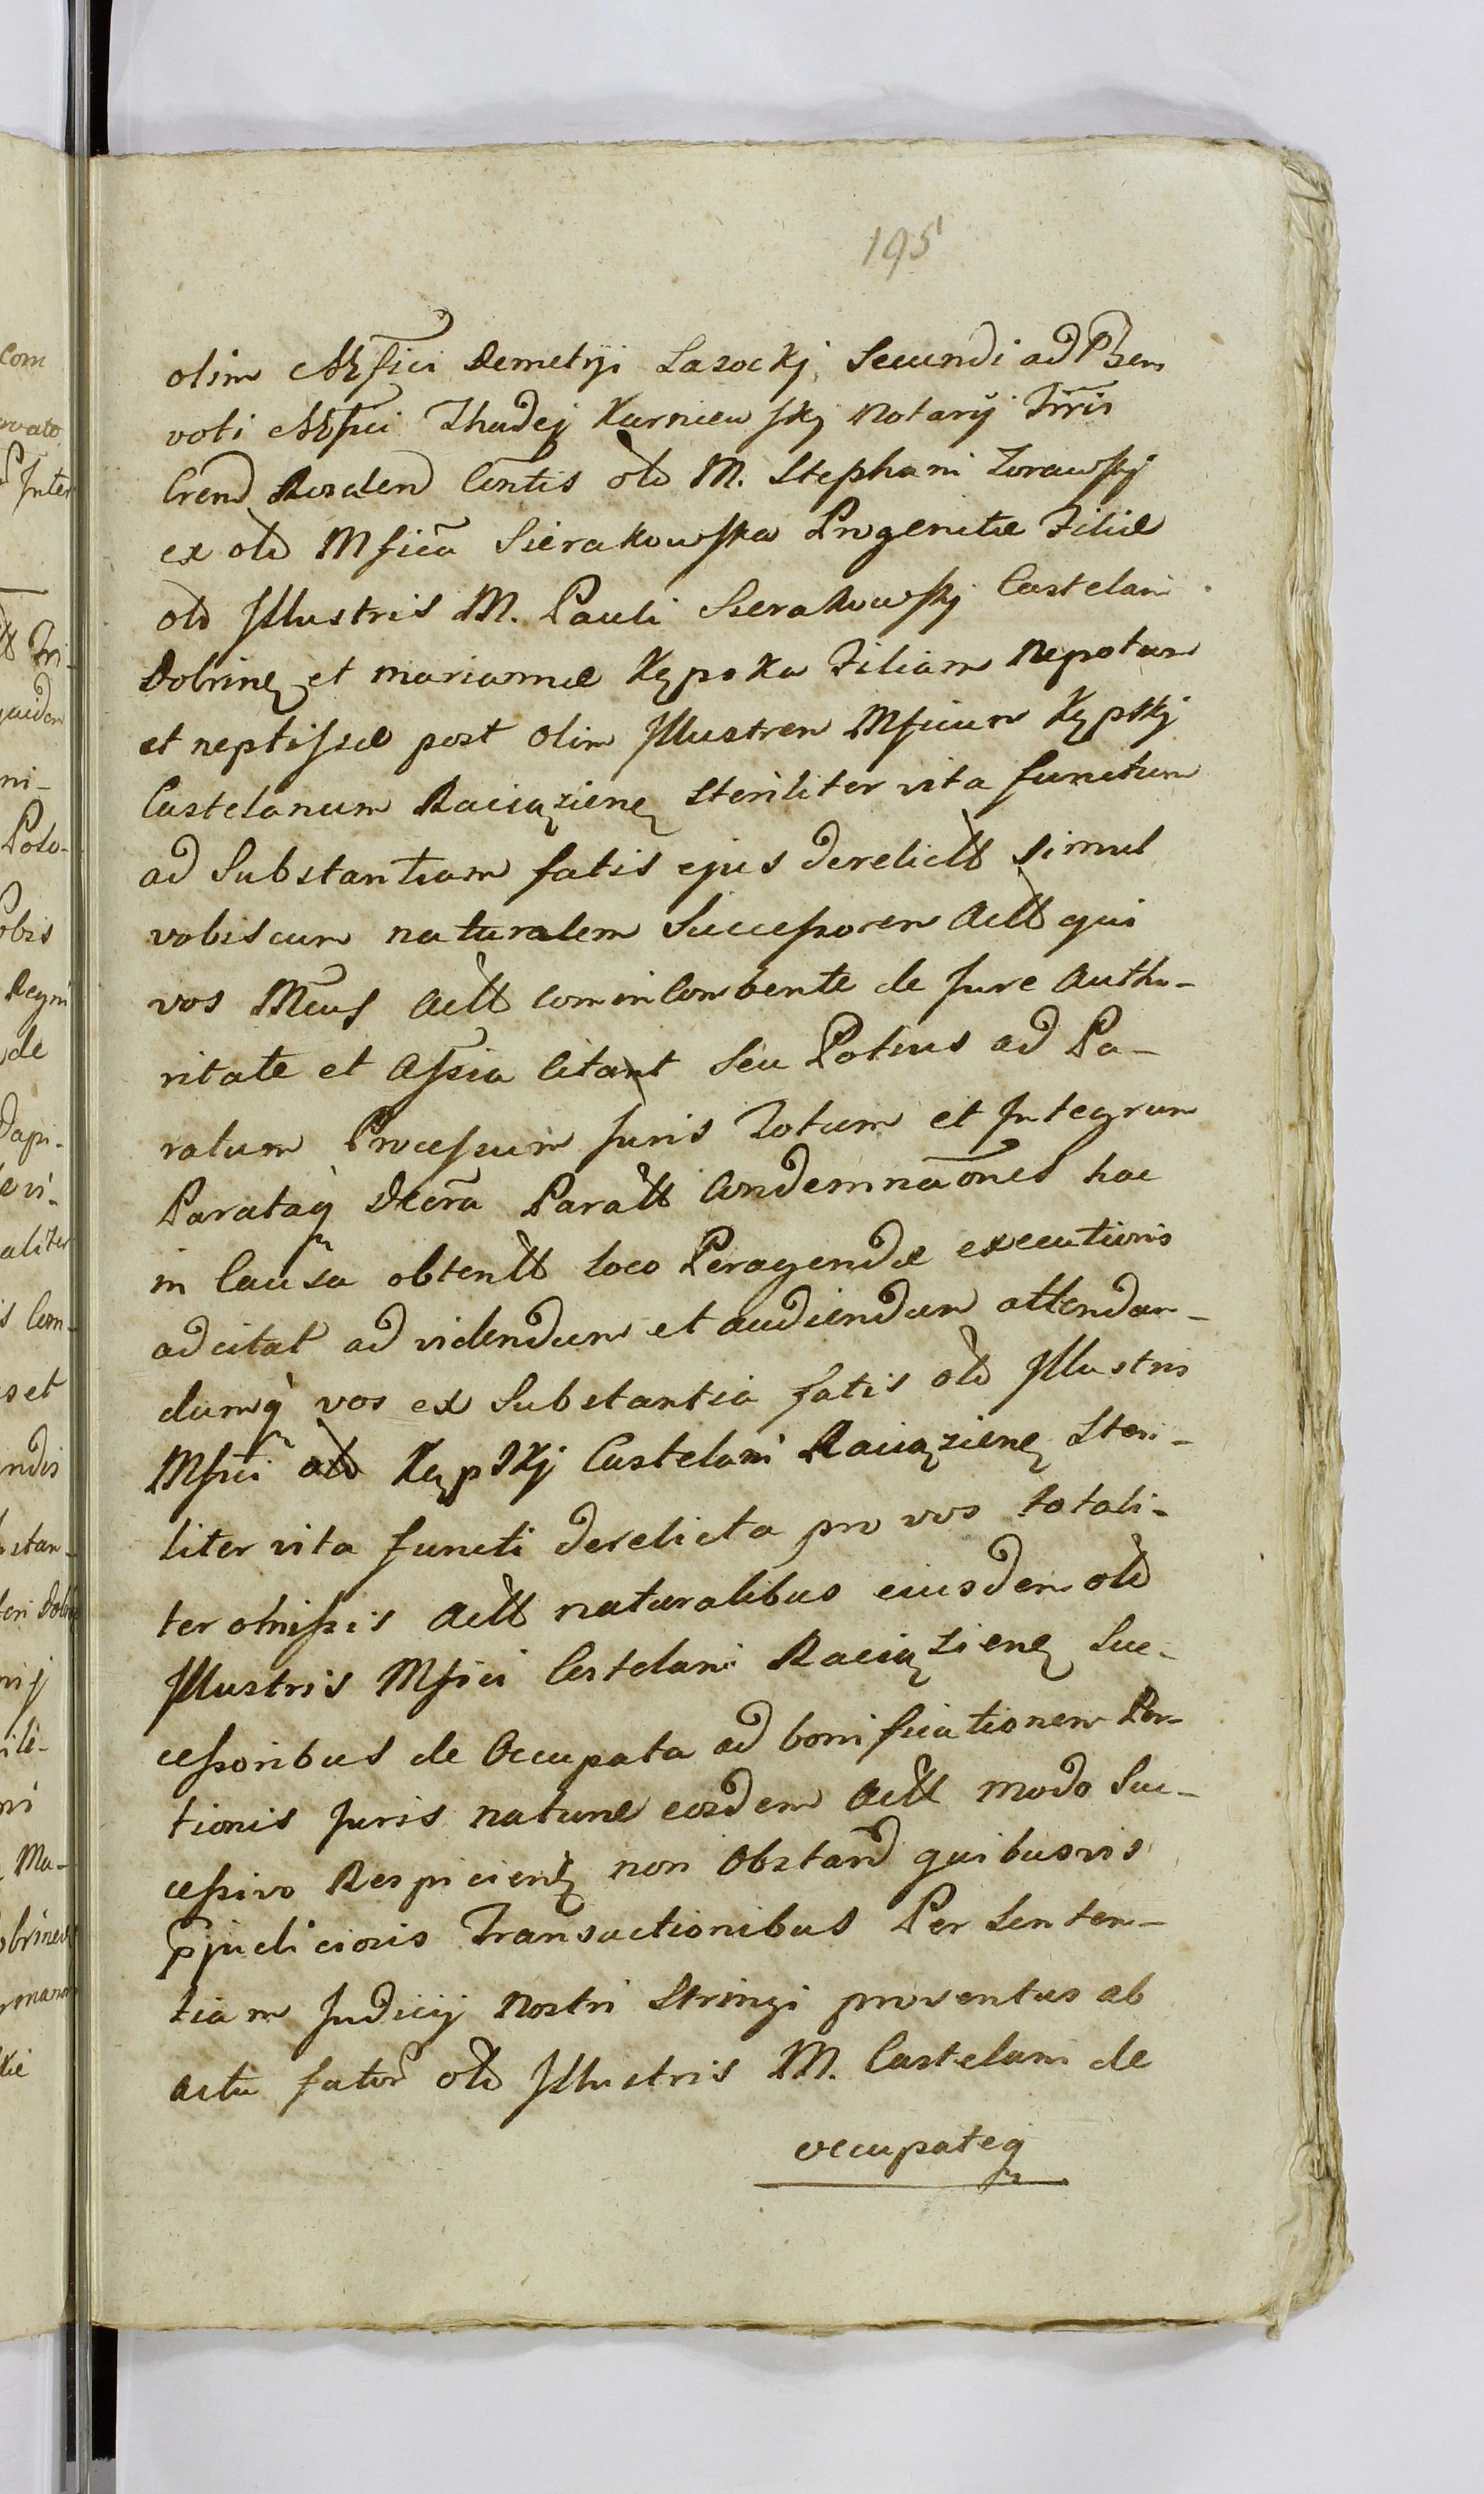 195
olim Mfici Demetrji Lasockj, Secundi ad Psens
voti Mfici Thadej Karniewskj Notarij Trris
Crend Residen Contis old M. Stephani Zorawskj
ex old Mficu Sierakowska Progenitæ Filiæ
old Illustris M. Pauli Sierakowskj Castelani
Dobrinę et mariannæ Kępska Filiam Nepotum
et neptissæ post olim Illustrem Mficum Kępskj
Castelanum Raciązienę Steriliter vita functum
ad Substantiam fatis ejus derelictt simul
vobiscum naturalem Successorem Actt qui
vos Mcus Actt cominConbente de Jure Autho-
ritate et Assia Citant Seu Potius ad Pa-
ratum Processum Juris Totum et Integrum
Parataq Decra Paratt Condemnaones hac
in Causa obtentt Loco Peragendæ executionis
adcitat ad videndum et audiendum attendan-
dumq vos ex Substantia fatis old Illustris
Mfici old Kępskj Castelani Raciązienę Steri-
liter vita functi derelicta pro vos totali-
ter omissis Actt naturalibus eiusdem old
Illustris Mfici Castelani Raciązienę Suc-
cessoribus de Occupata ad bonificationem Por-
tionis Juris naturæ eosdem Actt modo Suc-
cessivo Respicientę non Obstand quibusvis
pjudiciosis Transactionibus Per Senten-
tiam Judicij Nostri Stringi proventus ab
actu fator old Illustris M. Castelani de
occupateq